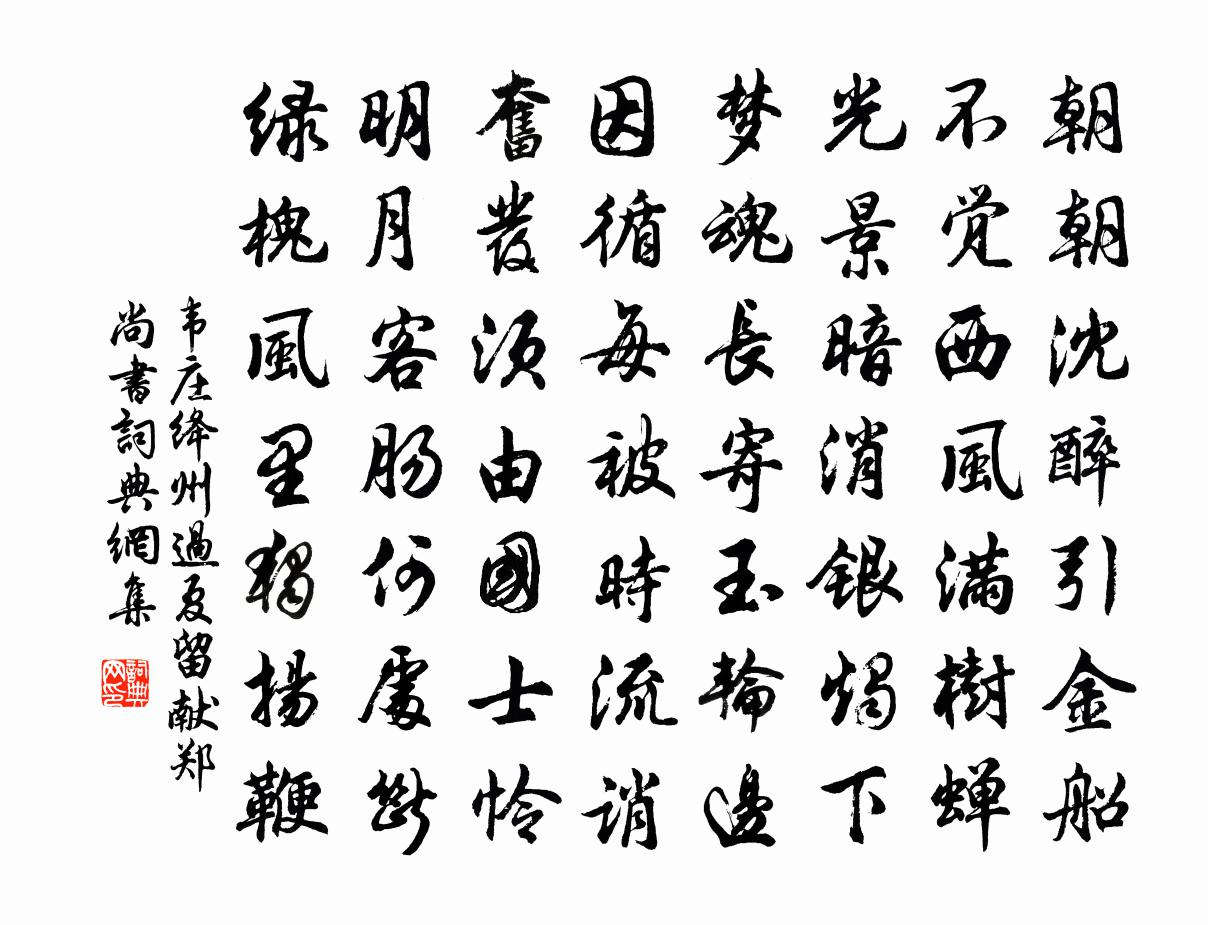 朝朝沈醉引金船
不觉西風滿樹蝉
光景暗消銀燭下
梦魂長寄玉輪邊
因循每被時流誚
奮發須由國士怜
明月客肠何處斷
绿槐風里獨揚鞭
韦庄绛州過夏留献郑
尚書詞典網集
詞典网印